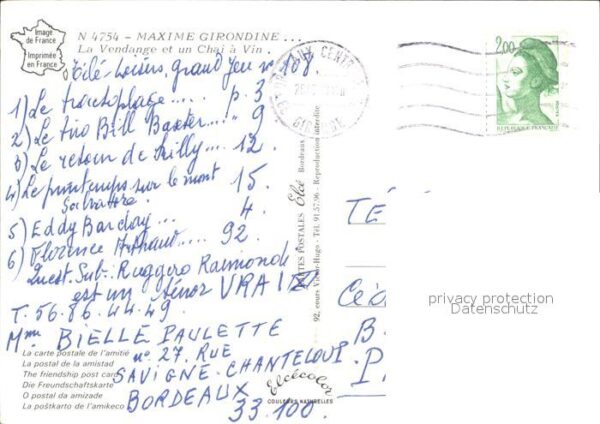 Image
de France
Imprimée
en France
N 4754 - MAXIME GIRONDINE ...
La Vendange et un Chai à Vin.
Télé-Loisirs, grand Jeu n° 108.
1) Le tractoplage..... p. 3
2) Le trio Bill Baxter.... " 9
3) Le retour de Billy... 12.
4) Le printemps sur le mont 15.
5) Eddy Barclay... 4.
6) Florence Arthaud..... 92.
Quest. Sub. Ruggero Raimondi
est un ténor VRAI
T. 56.86.44.49.
Mme BIELLE PAULETTE
n° 27, RUE
SAVIGNE-CHANTELOUP
BORDEAUX
33.100.
La carte postale de l'amitié
La postal de la amistad
The friendship post card
Die Freundschaftskarte
O postal da amizade
La poŝtkarto de l'amikeco
Elcé Bordeaux
92, cours Victor-Hugo - Tél. 91.57.96 - Reproduction interdite
Elcécolor
COULEURS NATURELLES
BORDEAUX CENTR
GIRONDE
2,00
REPUBLIQUE FRANÇAISE
TÉ
Céd
B.
P
privacy protection
Datenschutz